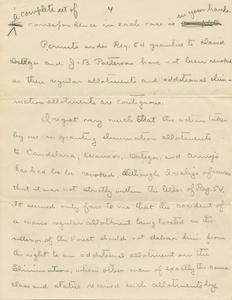 a complete set of
4
in your hands.
correspondence in each case is
Permits under Reg. 54 granted to David
Gallegos and J. B. Patterson have not been revoked
as their regular allotments and additional elimi-
nation allotments are contiguous.
I regret very much that the action taken
by me in granting elimination allotments
to Candelaria, and Armijo
has had to be revoked. Although I realize of course
that it was not strictly within the letter of Reg. 54,
it seemed only fair to me that the accident of
a man's regular allotment being located in the
interior of the Forest should not debar him from
the right to an additional allotment on the
Elimination, when other men of exactly the same
class and status secured such allotments by